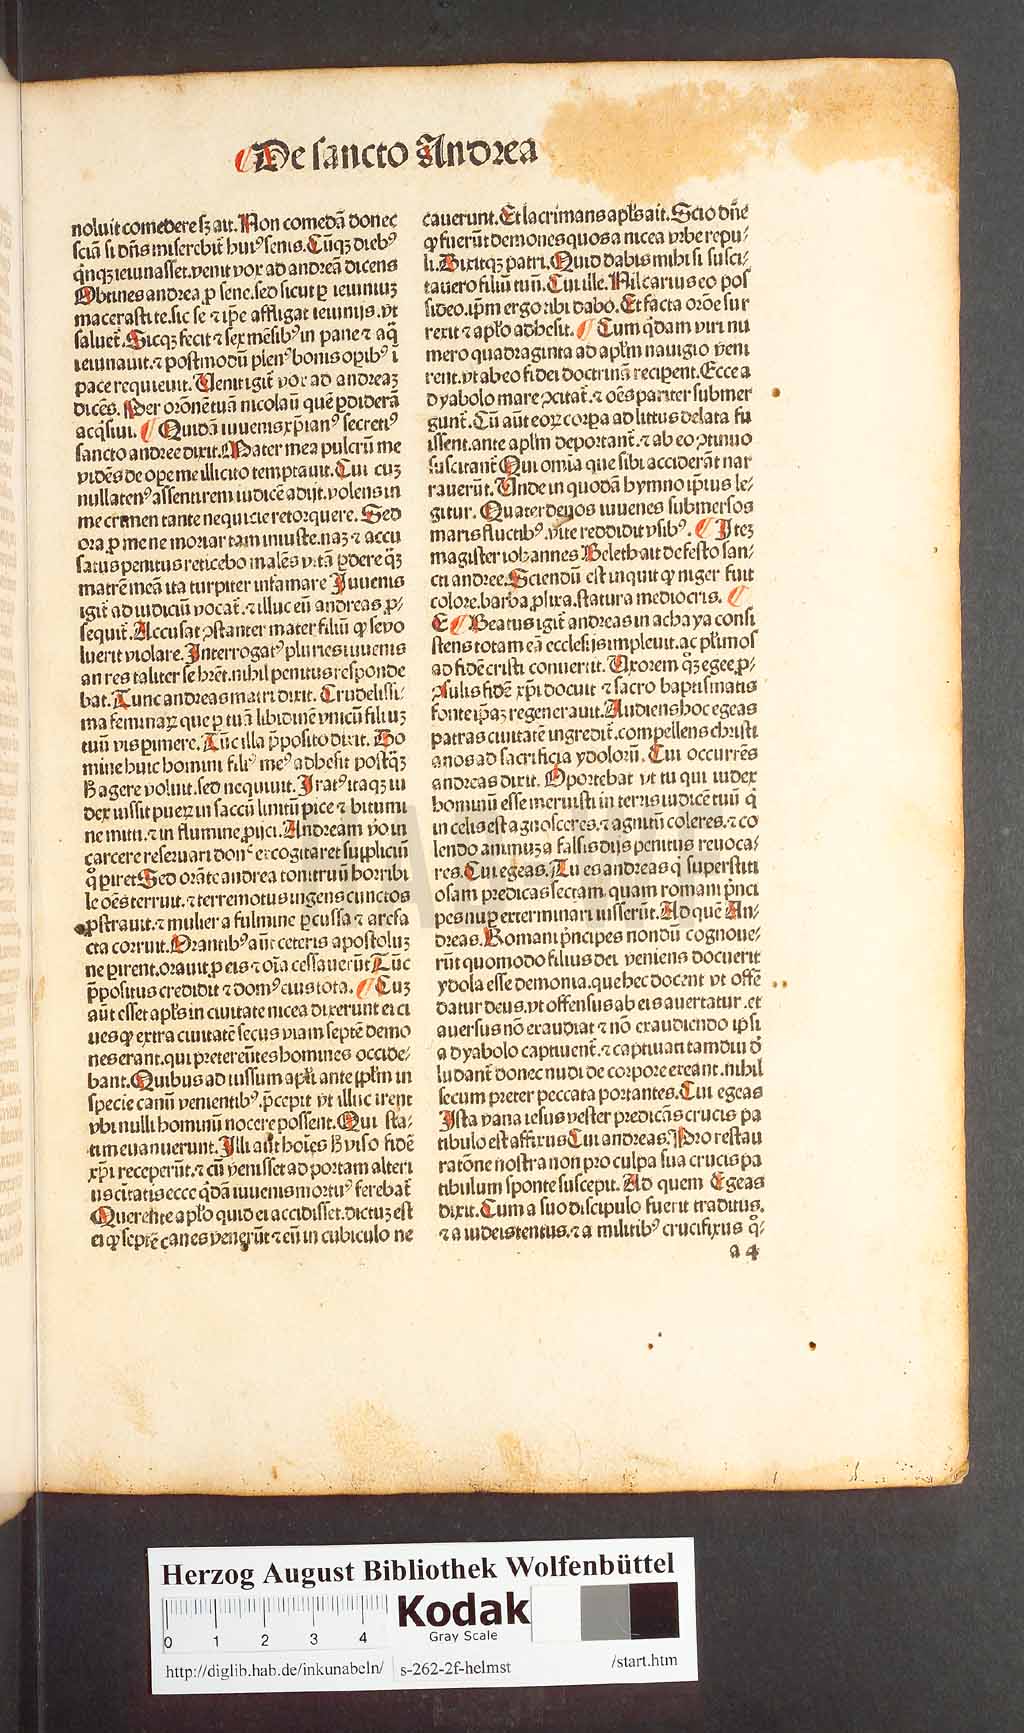 De sancto Andrea
noluit comedere sꝫ ait. Non comedā donec
sciā si dn̄s miserebit̄ huiꝰ senis. Cūqꝫ diebꝰ
qͥnqꝫ ieiunasset. venit vox ad andreā dicens
Obtines andrea ꝓ sene. sed sicut ꝑ ieiuniuꝫ
macerasti te. sic se ⁊ ip̄e affligat ieiunijs. vt
saluet̄. Sicqꝫ fecit ⁊ sex mēsibꝰ in pane ⁊ aq̄
ieiunauit. ⁊ postmodū plenꝰ bonis oꝑibꝰ ī
pace requieuit. Uenit igit̄ vox ad andreaꝫ
dicēs. Per orōnē tuā nicolaū quē ꝑdiderā
acqͥsiui. Quidā iuuenis xp̄ianꝰ secretiꝰ
sancto andree dixit. Mater mea pulcrū me
vidēs de oꝑe me illicito temptauit. Cui cuꝫ
nullatenꝰ assentirem iudicē adijt. volens in
me crimen tante nequicie retorquere. Sed
ora ꝓ me ne moriar tam iniuste. naꝫ ⁊ accu
satus penitus reticebo malēs vitā ꝑdere qͣꝫ
matrē meā ita turpiter infamare Iuuenis
igit̄ ad iudiciū vocat̄. ⁊ illuc eū andreas ꝓ-
sequit̄. Accusat ꝯstanter mater filiū ꝙ se vo
luerit violare. Interrogatꝰ pluries iuuenis
an res taliter se hrēt. nihil penitus responde
bat. Tunc andreas matri dixit. Crudelissi-
ma feminaꝝ que ꝑ tuā libidinē vnicū filiuꝫ
tuū vis ꝑimere. Tūc illa p̄posito dixit. Do
mine huic homini filiꝰ meꝰ adhesit postqͣꝫ
ħ agere voluit. sed nequiuit. Iratꝰ itaqꝫ iu
dex iussit pueꝝ in saccū linitū pice ⁊ bitumi
ne mitti. ⁊ in flumine ꝓijci. Andream v̓o in
carcere reseruari donc̄ excogitaret suppliciū
qͦ ꝑiret Sed orāte andrea tonitruū horribi
le oēs terruit. ⁊ terremotus ingens cunctos
ꝓstrauit. ⁊ mulier a fulmine ꝑcussa ⁊ arefa
cta corruit. Orantibꝰ aūt ceteris apostoluꝫ
ne ꝑirent. orauit ꝓ eis ⁊ oīa cessauerūt Tūc
p̄positus credidit ⁊ domꝰ eius tota. Cuꝫ
aūt esset apl̄s in ciuitate nicea dixerunt ei ci
ues ꝙ extra ciuitatē secus viam septē demo
nes erant. qui pretereūtes homines occide-
bant. Quibus ad iussum apl̄i ante ipl̄m in
specie canū venientibꝰ. p̄cepit vt illuc irent
vbi nulli hominū nocere possent. Qui sta-
tim euanuerunt. Illi aūt hoīes ħ viso fidē
xp̄i receperūt. ⁊ cū venisset ad portam alteri
us ciuitatis ecce qͥdā iuuenis mortuꝰ ferebat̄
Querente apl̄o quid ei accidisset. dictuꝫ est
ei ꝙ septē canes venerūt ⁊ eū in cubiculo ne
cauerunt. Et lacrimans apl̄s ait. Scio dn̄e
ꝙ fuerūt demones quos a nicea vrbe repu-
li. Dixitqꝫ patri. Quid dabis mihi si susci-
tauero filiū tuū. Cui ille. Nil carius eo pos
sideo. ip̄m ergo tibi dabo. Et facta orōe sur
rexit ⁊ apl̄o adhesit. Cum qͥdam viri nu
mero quadraginta ad apl̄m nauigio veni
rent. vt ab eo fidei doctrinā reciperent. Ecce a
dyabolo mare ꝯcitat̄. ⁊ oēs pariter submer
gunt̄. Cū aūt eoꝝ corꝑa ad littus delata fu
issent. ante apl̄m deportant̄. ⁊ ab eo ꝯtinuo
suscitant̄ Qui omīa que sibi acciderāt nar
rauerūt. Unde in quodā hymno ipsius le-
gitur. Quater denos iuuenes submersos
maris fluctibꝰ. vite reddidit vsibꝰ. Iteꝫ
magister iohannes Beleth ait de festo san-
cti andree. Sciendū est inquit ꝙ niger fuit
colore. barba ꝓlixa. statura mediocris.
E Beatus igit̄ andreas in achaya consi
stens totam eā ecclesijs impleuit. ac plimos
ad fidē cristi conuertit. Uxorem qͣꝫ egee ꝓ-
ꝯsulis fidē xp̄i docuit ⁊ sacro baptismatis
fonte ip̄aꝫ regenerauit. Audiens hoc egeas
patras ciuitatē ingredit̄. compellens christi
anos ad sacrificia ydolorū. Cui occurrēs
andreas dixit. Oportebat vt tu qui iudex
hominū esse meruisti in terris iudicē tuū qͥ
in celis est agnosceres. ⁊ agnitū coleres. ⁊ co
lendo animuꝫ a falsis dijs penitus reuoca-
res. Cui egeas. Tu es andreas qͥ superstiti
osam predicas sectam. quam romani pͥnci
pes nuꝑ exterminari iusserūt. Ad quē An-
dreas. Romani pͥncipes nondū cognoue-
rūt quomodo filius dei veniens docuerit
ydola esse demonia. que hec docent vt offē
datur deus. vt offensus ab eis auertatur. et
auersus nō exaudiat ⁊ nō exaudiendo ipsi
a dyabolo captiuent̄. ⁊ captiuati tamdiu d̓
ludant̄ donec nudi de corpore exeant. nihil
secum preter peccata portantes. Cui egeas
Ista vana iesus vester predicās crucis pa
tibulo est affixus Cui andreas. Pro restau
ratōne nostra non pro culpa sua crucis pa
tibulum sponte suscepit. Ad quem Egeas
dixit. Cum a suo discipulo fuerit traditus.
⁊ a iudeis tentus. ⁊ a militibꝰ crucifixus qͦ-
a 4
Herzog August Bibliothek Wolfenbüttel
0 1 2 3 4
Kodak
Gray Scale
http://diglib.hab.de/inkunabeln/ s-262-2f-helmst /start.htm